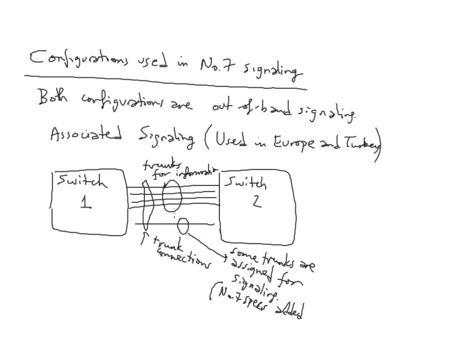 Configurations used in No.7 signaling
Both configurations are out-of-band signaling.
Associated Signaling (Used in Europe and Turkey)
trunks
for information
Switch
1
Switch
2
trunk
connections
some trunks are
assigned for
signaling.
(No.7 specs added